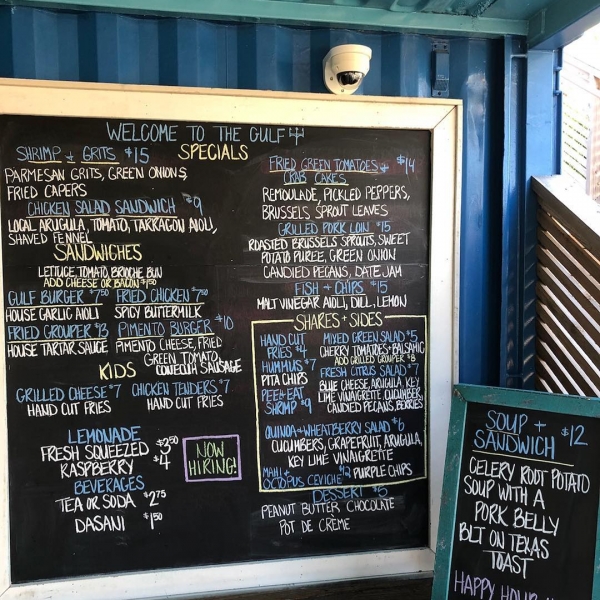 WELCOME TO THE GULF
SPECIALS
SHRIMP + GRITS $15
PARMESAN GRITS, GREEN ONIONS,
FRIED CAPERS
CHICKEN SALAD SANDWICH $9
LOCAL ARUGULA, TOMATO, TARRAGON AIOLI,
SHAVED FENNEL
SANDWICHES
LETTUCE, TOMATO, BRIOCHE BUN
ADD CHEESE OR BACON $1.50
GULF BURGER $7.50 FRIED CHICKEN $7.50
HOUSE GARLIC AIOLI SPICY BUTTERMILK
FRIED GROUPER $13 PIMENTO BURGER $10
HOUSE TARTAR SAUCE PIMENTO CHEESE, FRIED
GREEN TOMATO,
CONECUH SAUSAGE
KIDS
GRILLED CHEESE $7 CHICKEN TENDERS $7
HAND CUT FRIES HAND CUT FRIES
LEMONADE
FRESH SQUEEZED $3.50
RASPBERRY $4
BEVERAGES
TEA OR SODA $2.75
DASANI $1.50
NOW
HIRING!
FRIED GREEN TOMATOES + $14
CRAB CAKES
REMOULADE, PICKLED PEPPERS,
BRUSSELS SPROUT LEAVES
GRILLED PORK LOIN $15
ROASTED BRUSSELS SPROUTS, SWEET
POTATO PUREE, GREEN ONION
CANDIED PECANS, DATE JAM
FISH + CHIPS $15
MALT VINEGAR AIOLI, DILL, LEMON
SHARES + SIDES
HAND CUT
FRIES $4
HUMMUS $7
PITA CHIPS
PEEL + EAT
SHRIMP $9
MIXED GREEN SALAD $5
CHERRY TOMATOES + BALSAMIC
ADD GRILLED GROUPER $8
FRESH CITRUS SALAD $7
BLUE CHEESE, ARUGULA, KEY
LIME VINAIGRETTE, CUCUMBER,
CANDIED PECANS, BERRIES
QUINOA + WHEATBERRY SALAD $6
CUCUMBERS, GRAPEFRUIT, ARUGULA,
KEY LIME VINAIGRETTE
MAHI +
OCTOPUS CEVICHE $12 PURPLE CHIPS
DESSERT $5
PEANUT BUTTER CHOCOLATE
POT DE CRÈME
SOUP +
SANDWICH $12
CELERY ROOT POTATO
SOUP WITH A
PORK BELLY
BLT ON TEXAS
TOAST
HAPPY HOUR